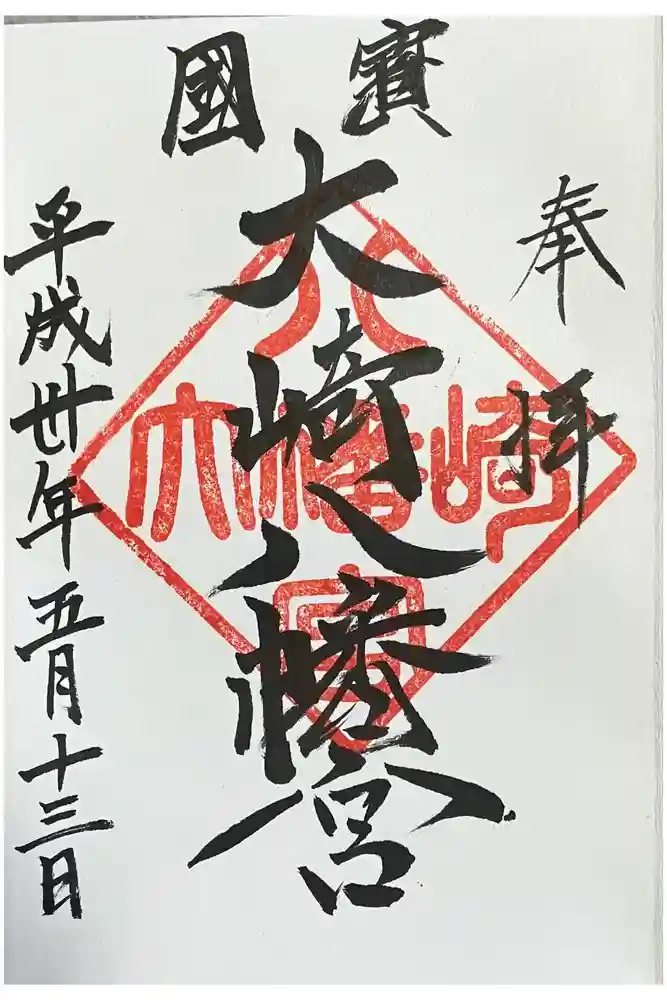 奉拝
國寳
大崎八幡宮
八
大崎
幡
宮
平成卅年五月十三日